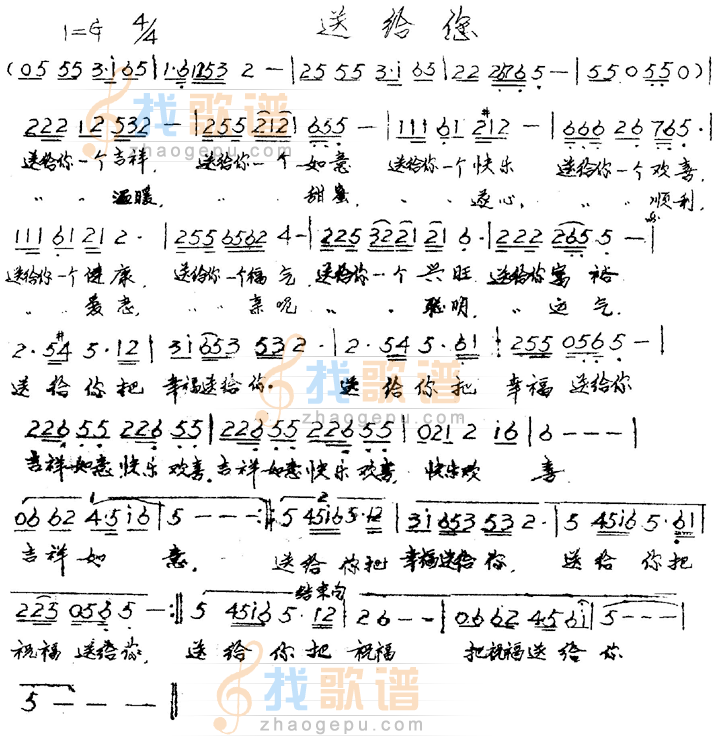 送给您
1=G 4/4
(05 55 3·i65|1·61253 2 —|25 55 3·i 65|22 25765 — |55 0550)|
222 12 532 — |255 212|655 — |111 61 212 — |666 26 765·|
送给你一个吉祥, 送给你一个如意 送给你一个快乐 送给你一个欢喜,
〃 〃 温暖, 〃 甜蜜 〃 〃 遂心, 〃 〃 顺利,
111 61 21 2·|255 6562 4—|225 3221 21 6·|222 265 5 —|
送给你一个健康, 送给你一个福气, 送给你一个兴旺, 送给你富裕
〃 〃 〃 〃 〃 〃 聪明, 〃 运气.
2·54 5·12|3i653 532·|2·54 5·61|255 0565—|
送给你把幸福送给你. 送给你把幸福送给你
226 55 226 55|226 55 226 55|021 2 i6|6———|
吉祥如意快乐欢喜,吉祥如意快乐欢喜, 快乐欢喜
1 2
06 62 4·5i6|5———:‖5 45i65·12|3i653 532·|5 45i6 5·61|
吉祥如意. 送给你把幸福送给你, 送给你把
结束句
223 0565 —:‖5 45i65·12|26——|0662 456i|5———|
祝福送给你, 送给你把祝福 把祝福送给你
5———‖
找歌谱
zhaogepu.com
找歌谱
zhaogepu.com
找歌谱
zhaogepu.com
找歌谱
zhaogepu.com